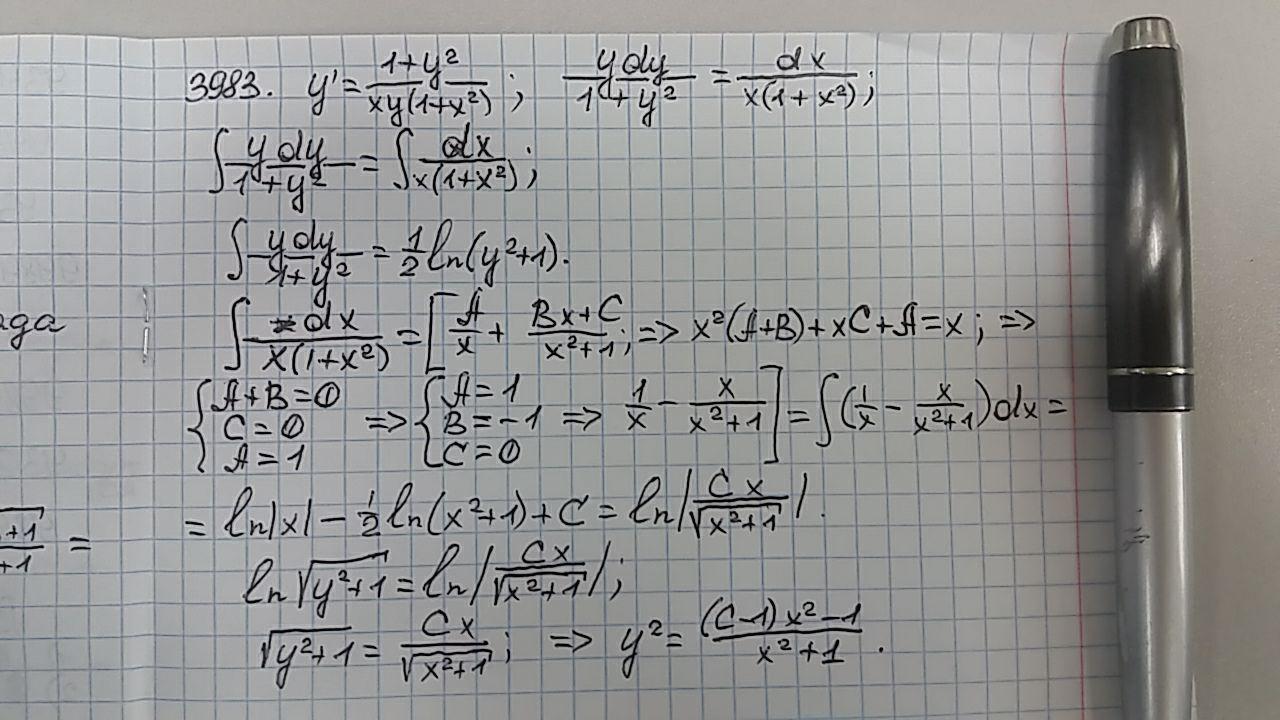 3983. y' = \frac{1+y^2}{xy(1+x^2)}; \frac{y dy}{1+y^2} = \frac{dx}{x(1+x^2)};
∫\frac{y dy}{1+y^2} = ∫\frac{dx}{x(1+x^2)};
∫\frac{y dy}{1+y^2} = \frac{1}{2} ln(y^2+1).
ода
∫\frac{dx}{x(1+x^2)} = [\frac{A}{x} + \frac{Bx+C}{x^2+1}; => x^2(A+B)+xC+A=x; =>
{A+B=0 C=0 A=1 => {A=1 B=-1 C=0 => \frac{1}{x} - \frac{x}{x^2+1}] = ∫(\frac{1}{x} - \frac{x}{x^2+1})dx =
= ln|x| - \frac{1}{2} ln(x^2+1) + C = ln|\frac{Cx}{\sqrt{x^2+1}}|.
+1 +1 =
ln\sqrt{y^2+1} = ln|\frac{Cx}{\sqrt{x^2+1}}|;
\sqrt{y^2+1} = \frac{Cx}{\sqrt{x^2+1}}; => y^2 = \frac{(C-1)x^2-1}{x^2+1}.